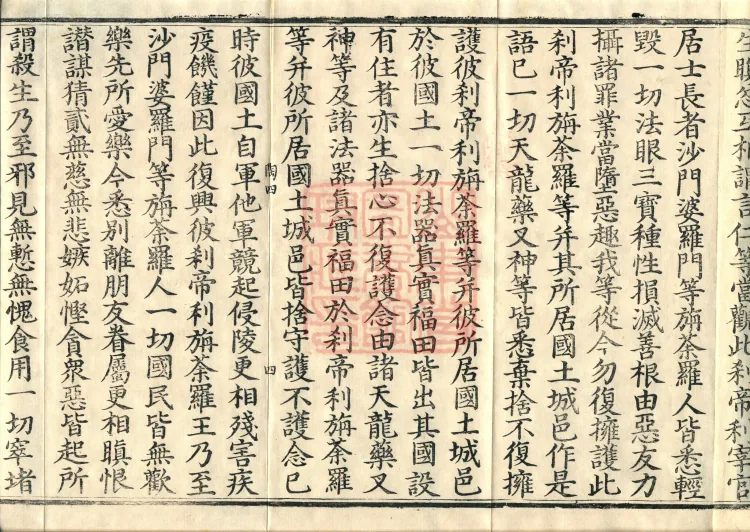 生瞋忿互相謂言仁等當觀此刹帝利宰官
居士長者沙門婆羅門等旃荼羅人皆悉輕
毀一切法眼三寶種性損滅善根由惡友力
攝諸罪業當墮惡趣我等從今勿復擁護此
刹帝利旃荼羅等幷其所居國土城邑作是
語已一切天龍藥叉神等皆悉棄捨不復擁
護彼刹帝利旃荼羅等幷彼所居國土城邑
於彼國土一切法器真實福田皆出其國設
有住者亦生捨心不復護念由諸天龍藥叉
神等及諸法器真實福田於刹帝利旃荼羅
等幷彼所居國土城邑皆捨守護不護念已
陶四 四
時彼國土自軍他軍競起侵陵更相殘害疾
疫饑饉因此復興彼刹帝利旃荼羅王乃至
沙門婆羅門等旃荼羅人一切國民皆無歡
樂先所愛樂今悉別離朋友眷屬更相瞋恨
潛謀猜貳無慈無悲嫉妬慳貪衆惡皆起所
謂殺生乃至邪見無慙無愧食用一切窣堵